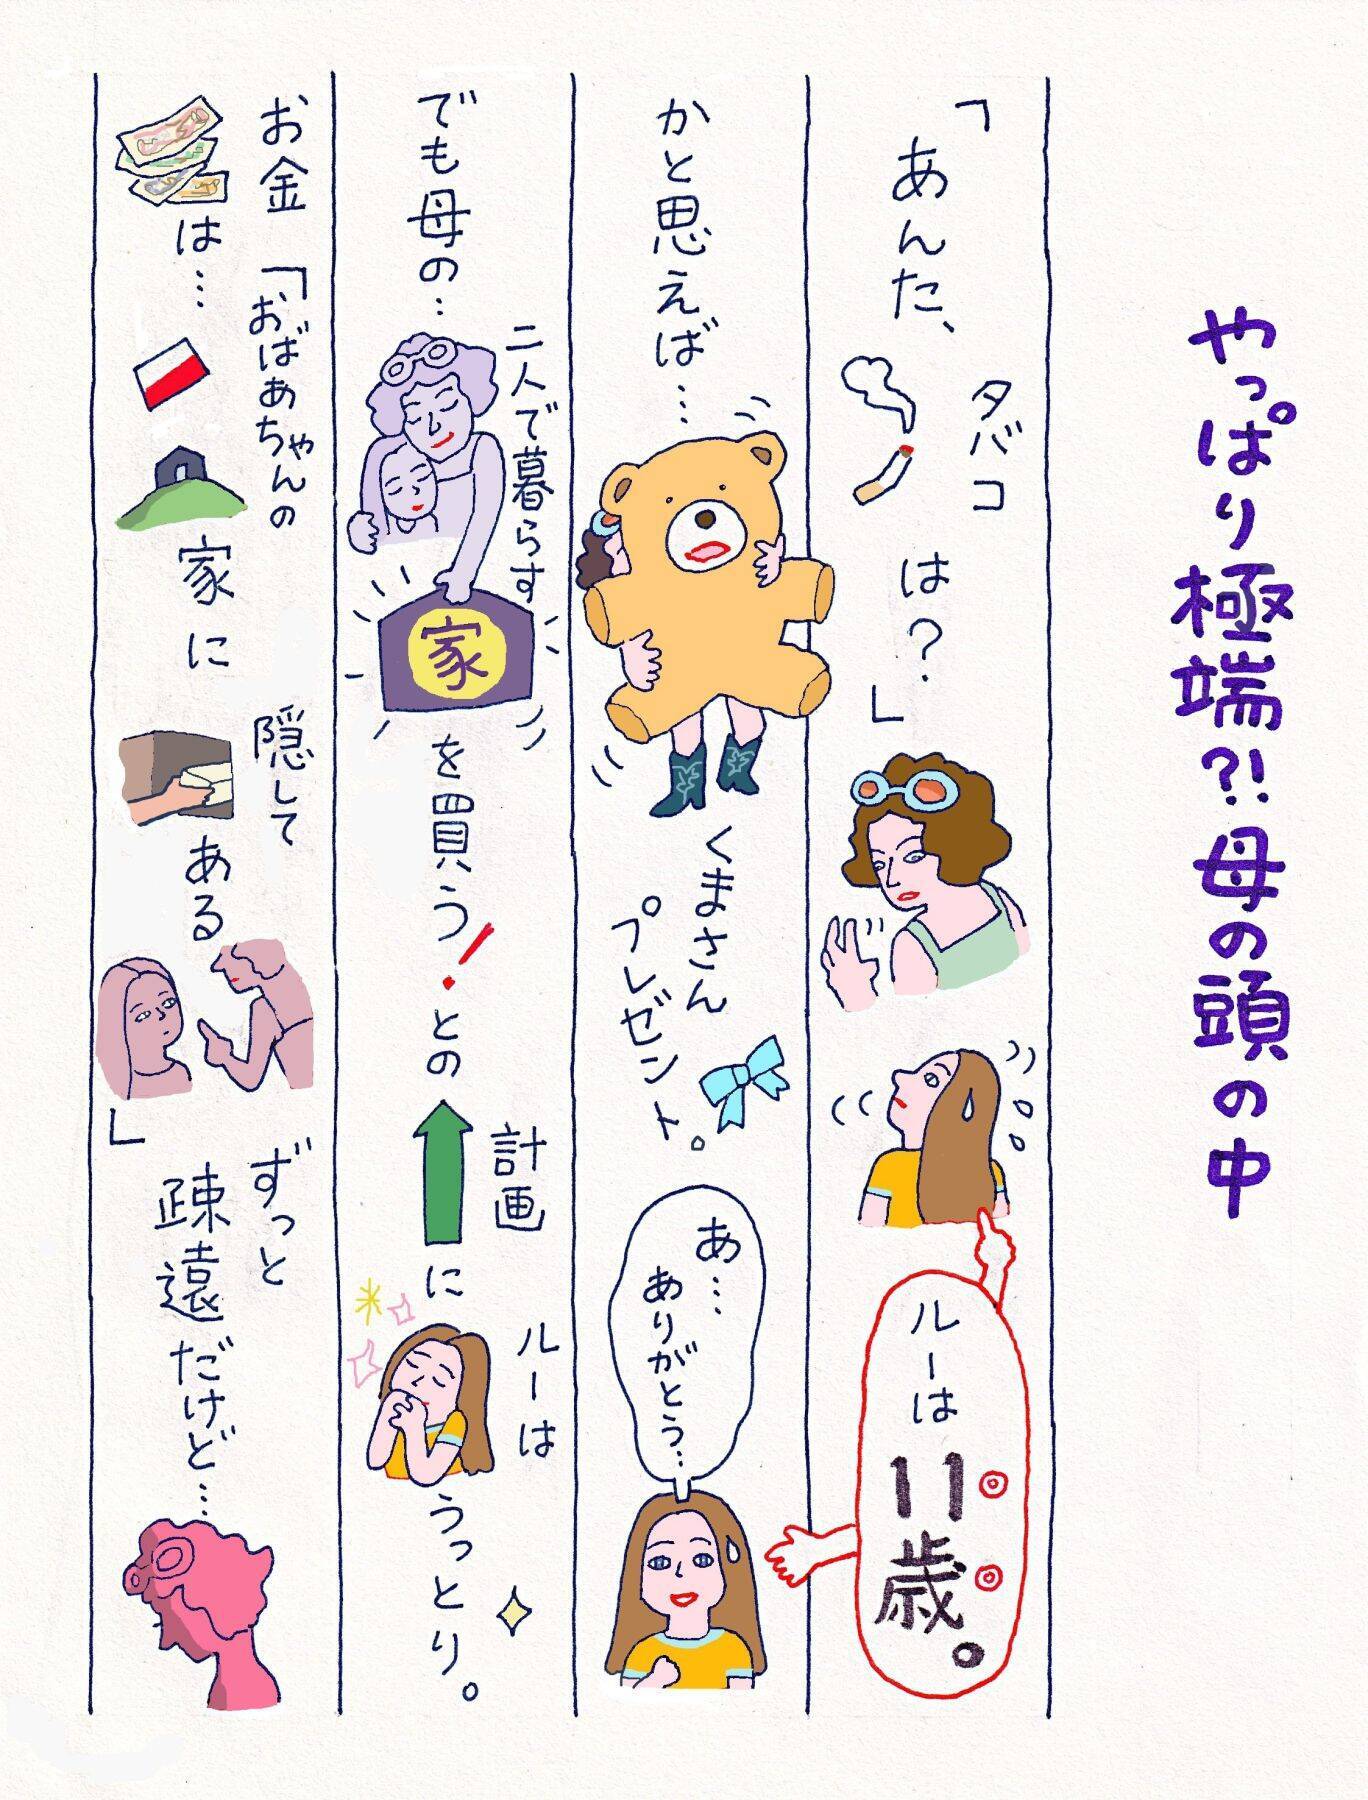 やっぱり極端?!母の頭の中
「あんた、
タバコ
は?」
ルーは
11歳。
かと思えば…
くまさん
プレゼント。
あ…
ありがとう…
でも母の…
二人で暮らす
家
を買う!との
計画
に
ルーは
うっとり。
お金
は…
「おばあちゃんの
家に
隠して
ある
」
ずっと
疎遠だけど…